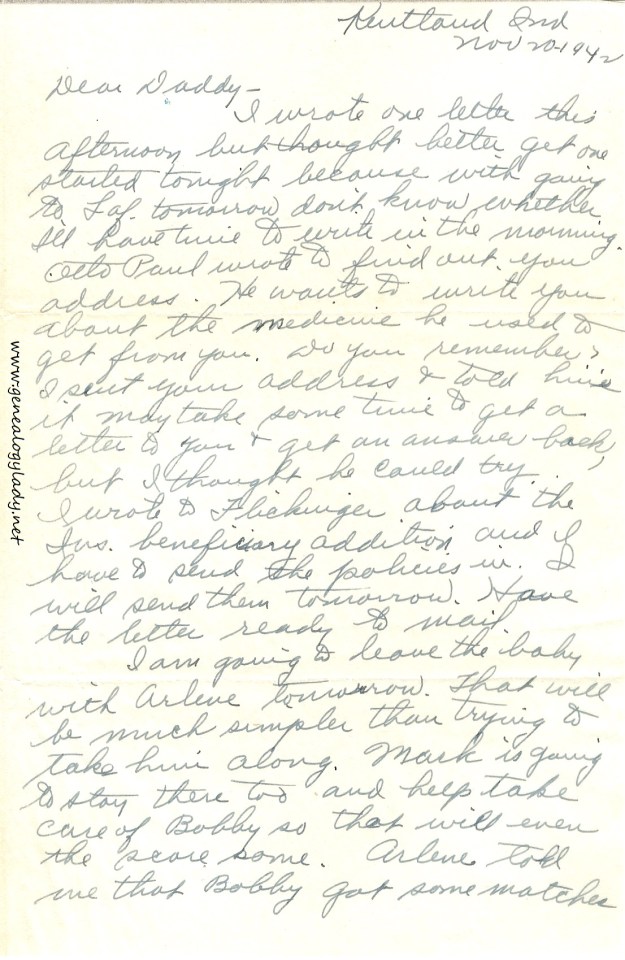 Kentland Ind
Nov 20-1942
Dear Daddy-
I wrote one letter this
afternoon but thought better get one
started tonight because with going
to Laf. tomorrow don't know whether
I'll have time to write in the morning.
Otto Paul wrote to find out you
address. He wants to write you
about the medicine he used to
get from you. Do you remember?
I sent your address & told him
it may take some time to get a
letter to you & get an answer back,
but I thought he could try.
I wrote to Flickinger about the
Ins. beneficiary addition and I
have to send the policies in. I
will send them tomorrow. Have
the letter ready to mail
I am going to leave the baby
with Arlene tomorrow. That will
be much simpler than trying to
take him along. Mark is going
to stay there too and help take
care of Bobby so that will even
the score some. Arlene told
me that Bobby got some matches
www.genealogylady.net